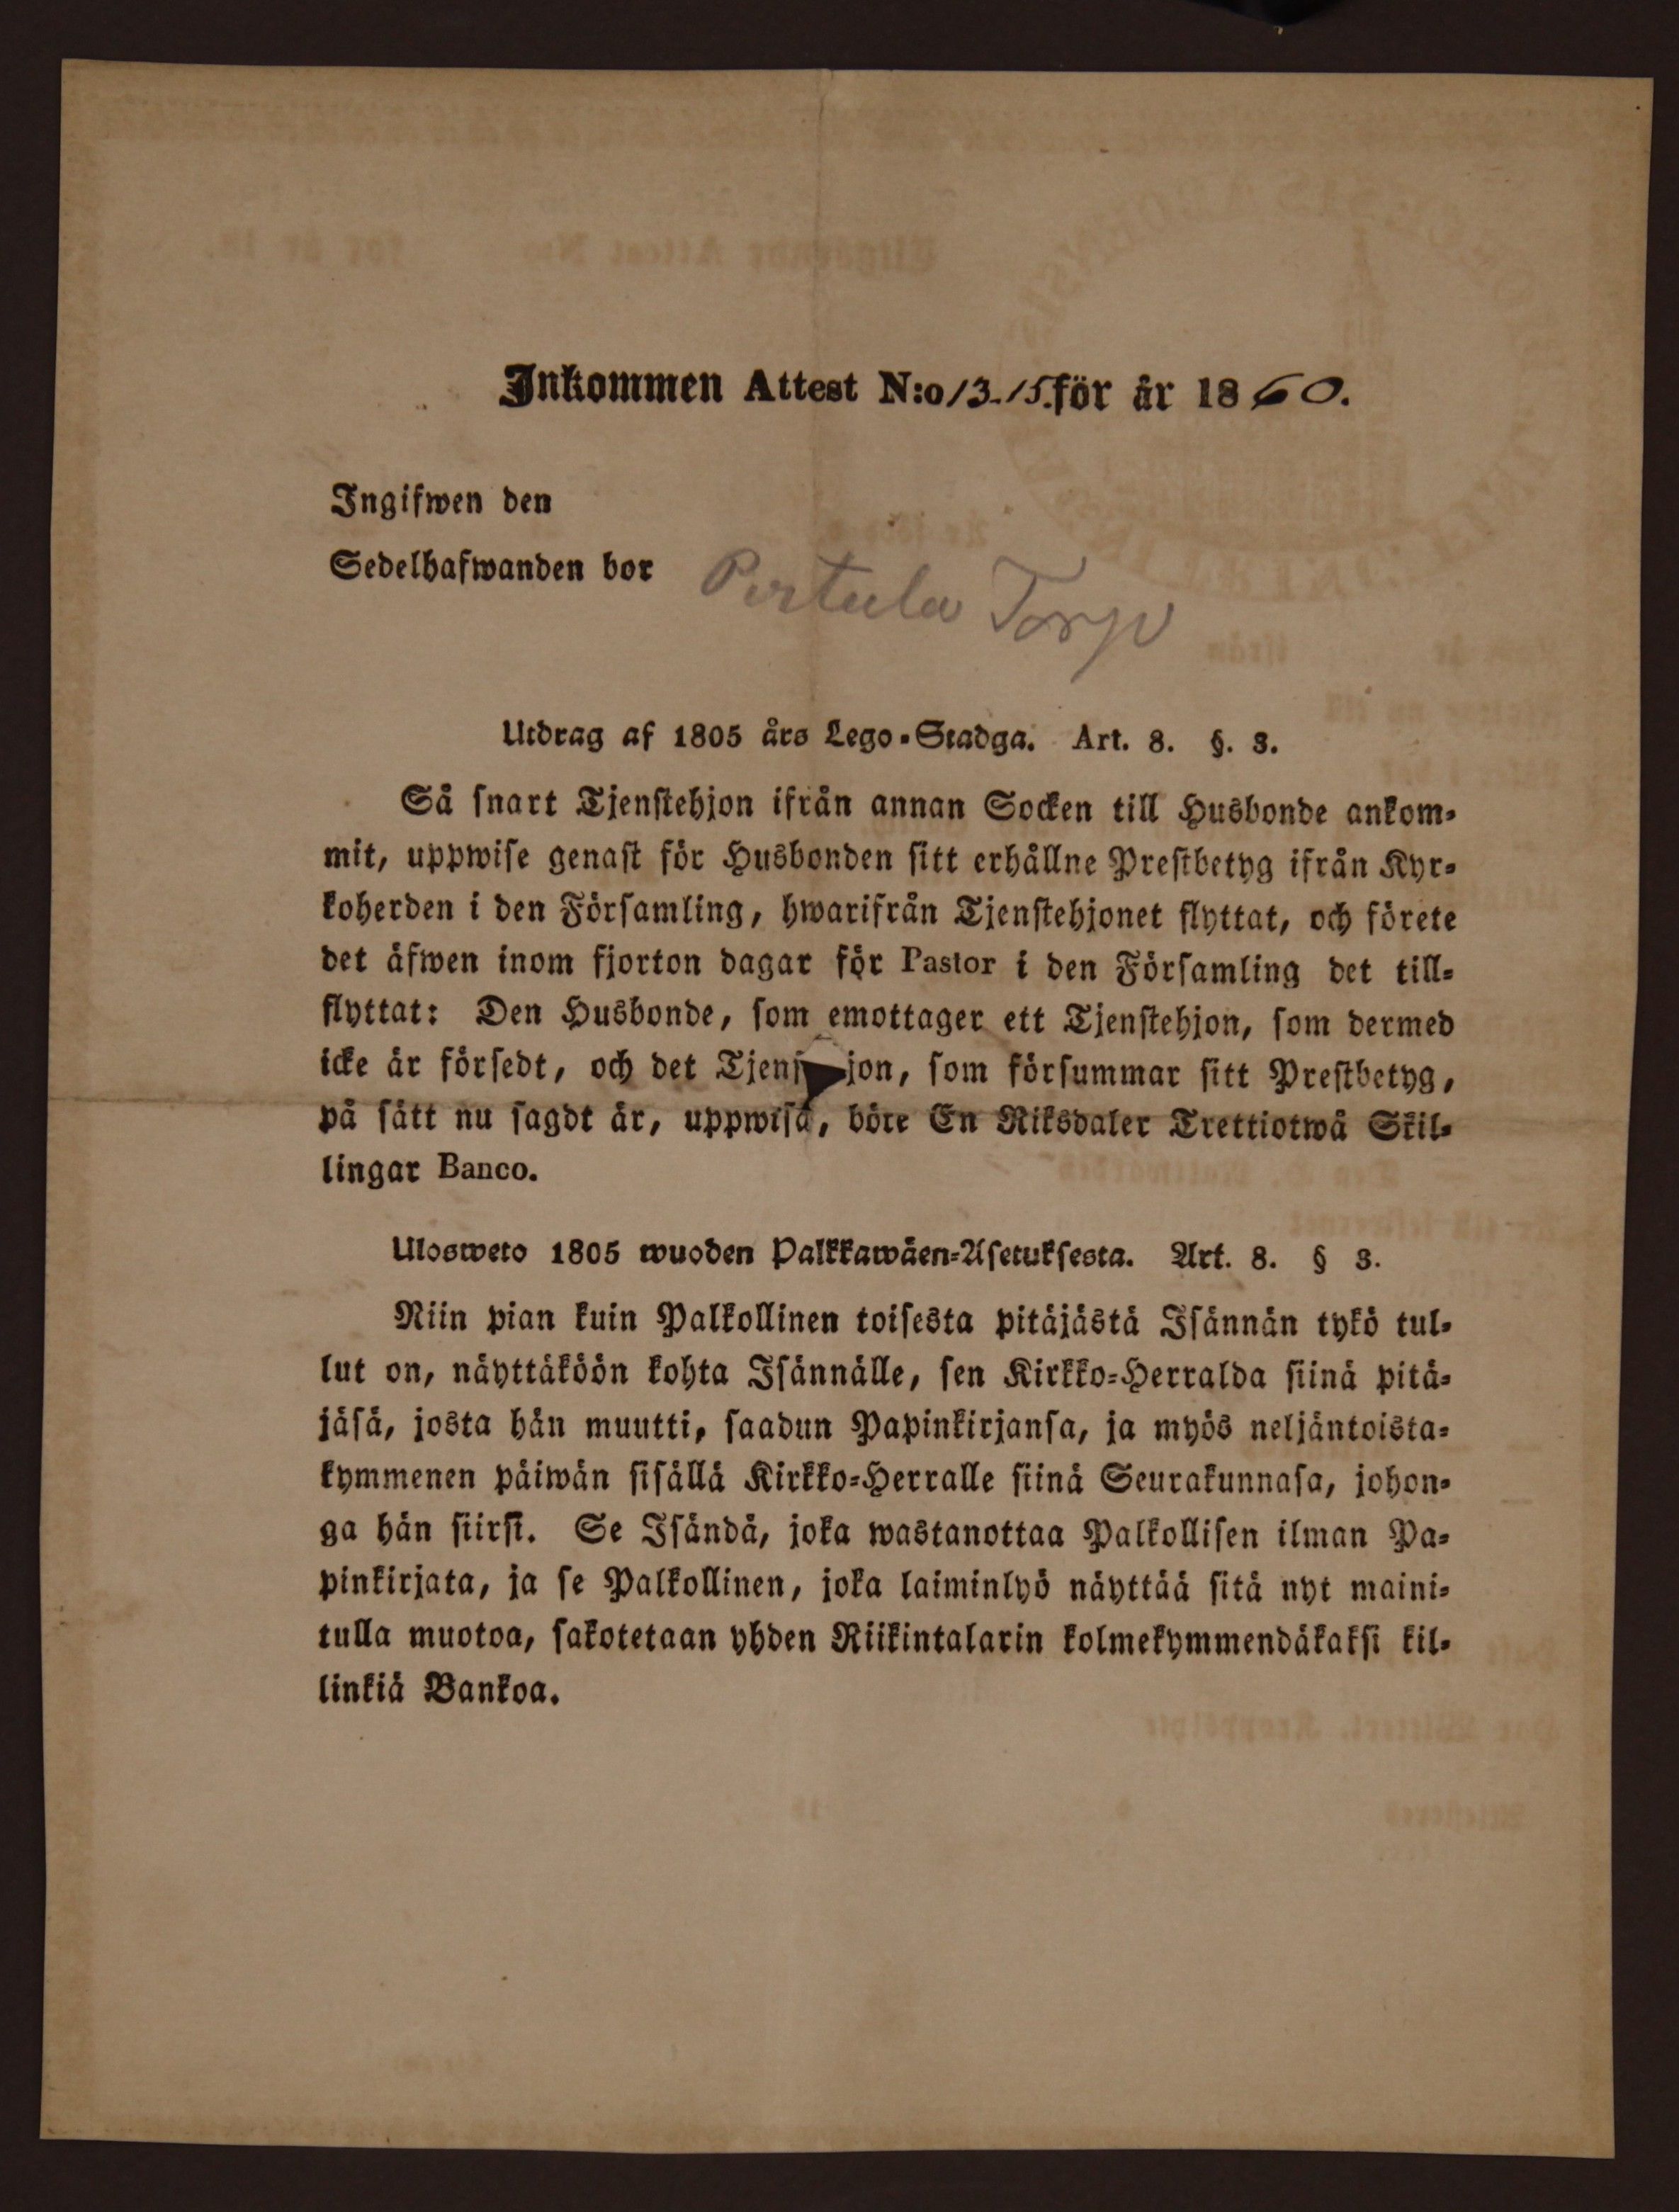 Inkommen Attest N:o 13-15. för år 1860.
Ingifwen den
Sedelhafwanden bor Pertula Torp
Utdrag af 1805 års Lego-Stadga. Art. 8. §. 3.
Så snart Tjenstehjon ifrån annan Socken till Husbonde ankom-
mit, uppwise genast för Husbonden sitt erhållne Prestbetyg ifrån Kyr-
koherden i den Församling, hwarifrån Tjenstehjonet flyttat, och förete
det äfwen inom fjorton dagar för Pastor i den Församling det till-
flyttat: Den Husbonde, som emottager ett Tjenstehjon, som dermed
icke är försedt, och det Tjens jon, som försummar sitt Prestbetyg,
på sätt nu sagdt är, uppwisa, böte En Riksdaler Trettiotwå Skil-
lingar Banco.
Ulosweto 1805 wuoden Palkkawäen-Asetuksesta. Art. 8. § 3.
Niin pian kuin Palkollinen toisesta pitäjästä Isännän tykö tul-
lut on, näyttäköön kohta Isännälle, sen Kirkko-Herralda siinä pitä-
jäsä, josta hän muutti, saadun Papinkirjansa, ja myös neljäntoista-
kymmenen päiwän sisällä Kirkko-Herralle siinä Seurakunnasa, johon-
ga hän siirsi. Se Isändä, joka wastanottaa Palkollisen ilman Pa-
pinkirjata, ja se Palkollinen, joka laiminlyö näyttää sitä nyt maini-
tulla muotoa, sakotetaan yhden Riikintalarin kolmekymmendäkaksi kil-
linkiä Bankoa.